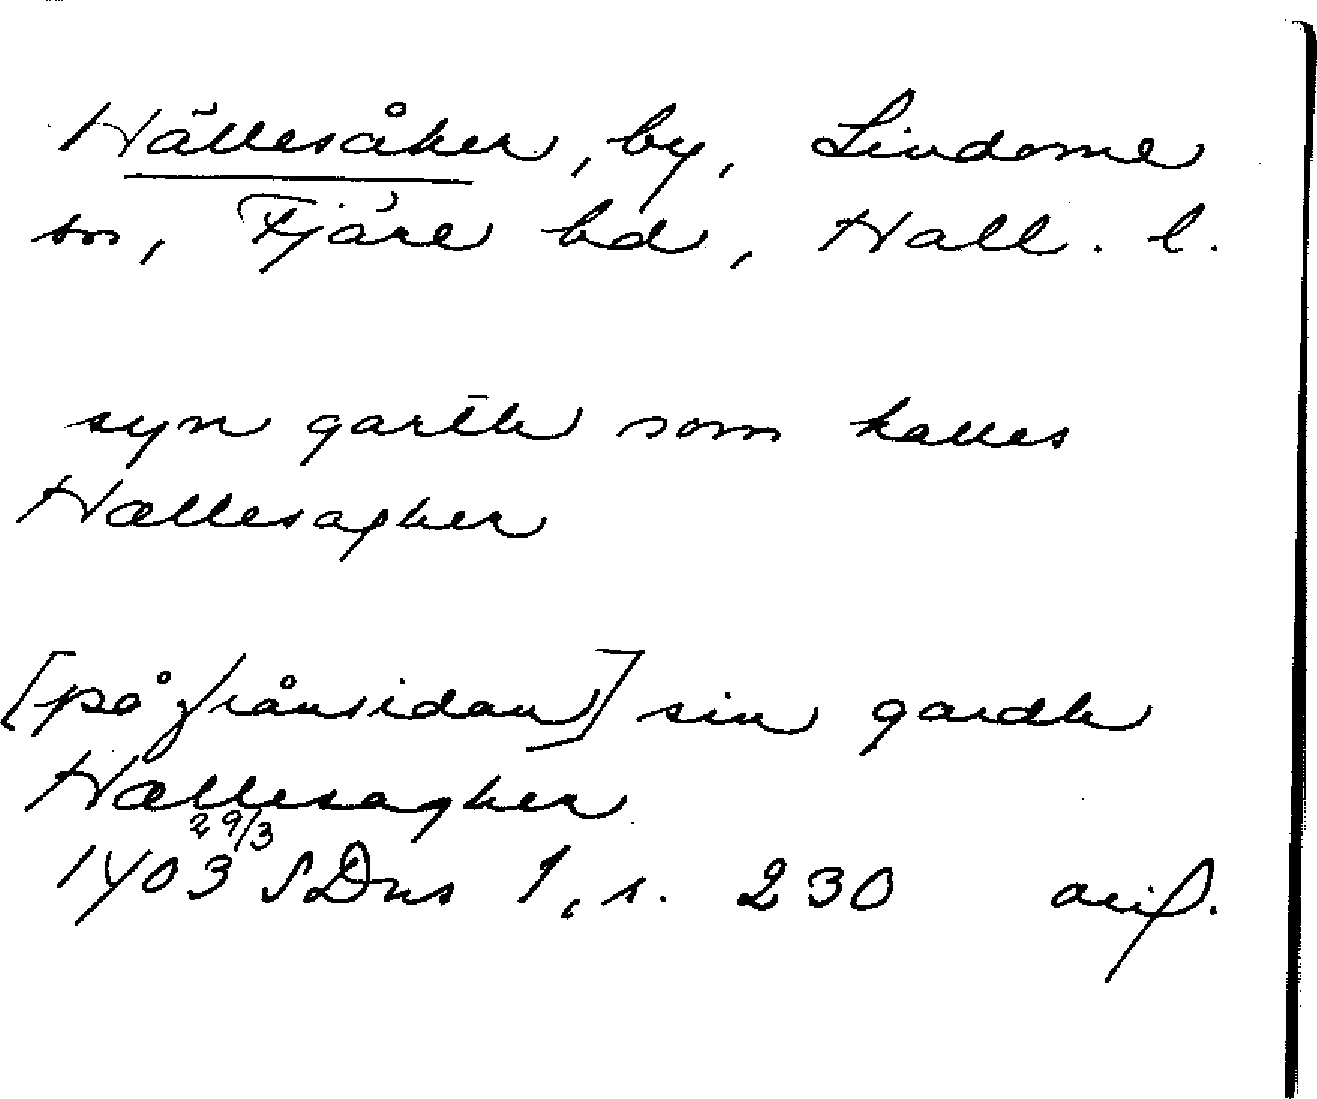 Hällesåker, by, Lindome
sn, Fjäre hd, Hall. l.
syn garth som kalles
Hællesagher
[på frånsidan] sin gardh
Hællesagher
1403 29/3 SDns 1, s. 230 avs.